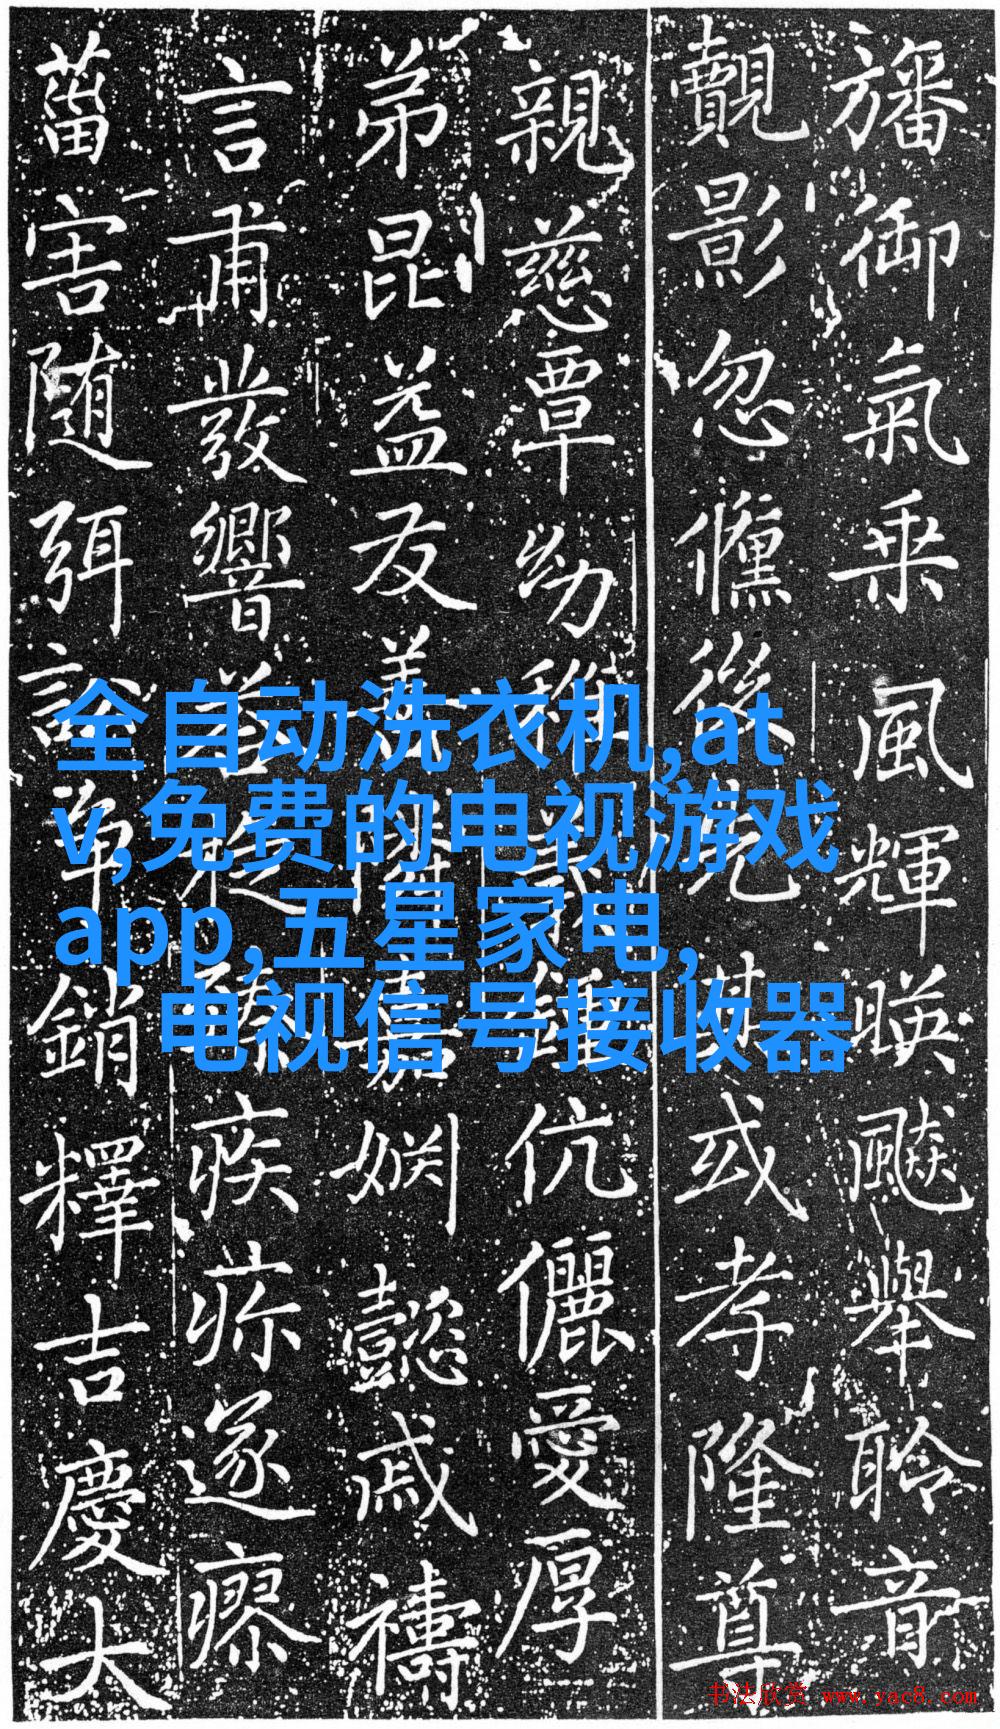 旛御氣乗風輝暎飈舉聆音
覿影忽後或孝隆尊
親慈覃幼伉儷愛厚
弟昆益友嘉姻懿戚禱
言甫發響疾疹遂瘳
葘害随弭訟爭銷釋吉慶大
全自动洗衣机,at
v,免费的电视游戏
app,五星家电,
电视信号接收器
书法欣赏 www.yac8.com